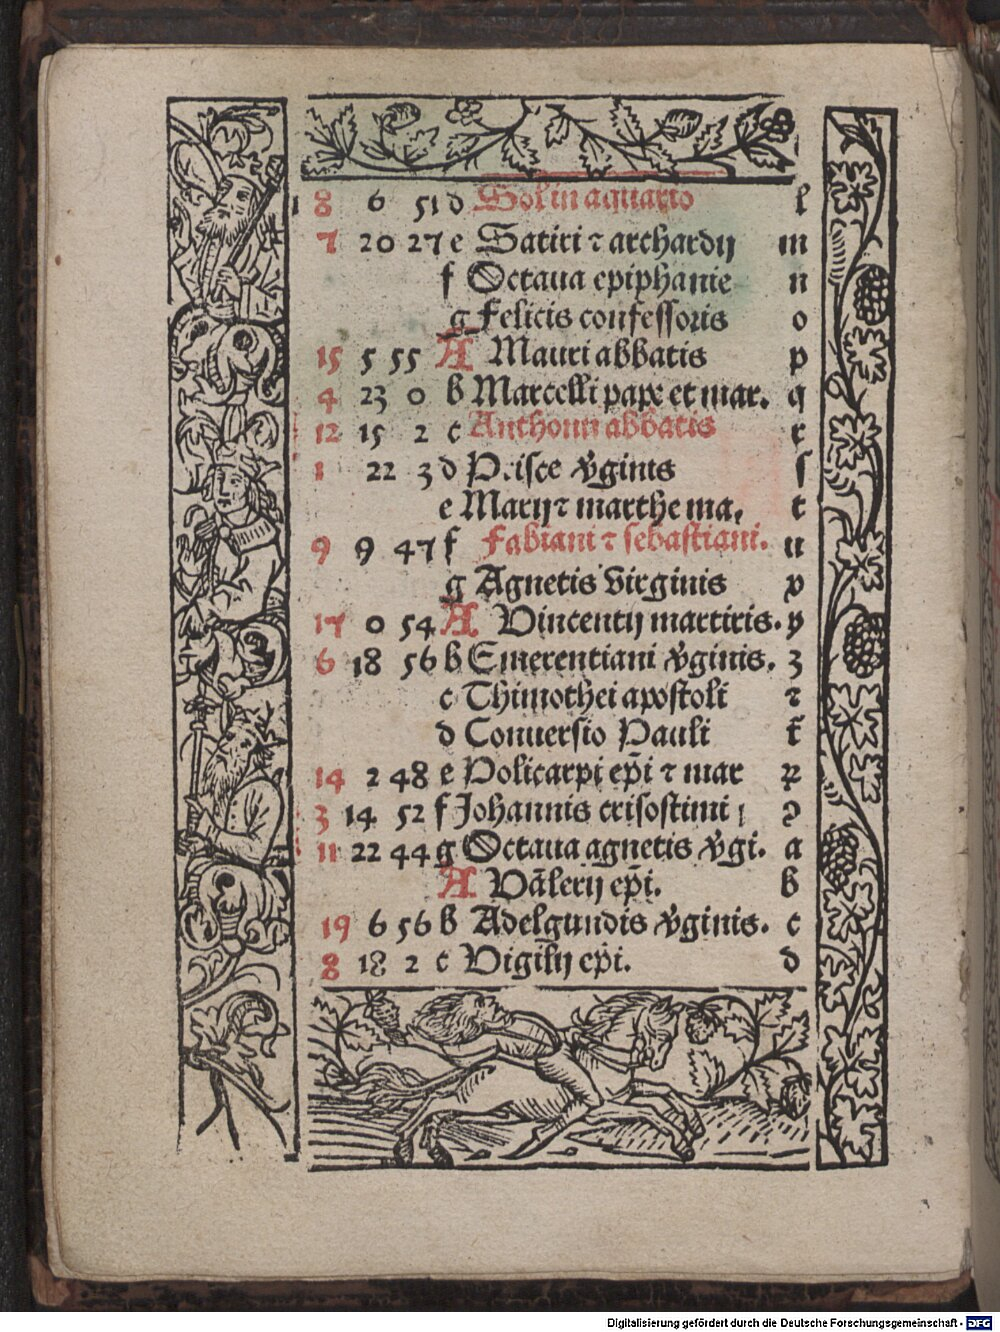 8 6 51 d Sol in aquario l
7 20 27 e Satiri ⁊ archardij m
f Octaua epiphanie n
g Felicis confessoris o
15 5 55 A Mauri abbatis p
4 23 0 b Marcelli pape et mar. q
12 15 2 c Anthonii abbatis r
1 22 3 d Prisce v̓ginis ſ
e Marij ⁊ marthe ma, t
9 9 47 f Fabiani ⁊ sebastiani. u
g Agnetis virginis v
17 0 54 A Vincentij martiris. y
6 18 56 b Emerentiani v̓ginis. z
c Thimothei apostoli ⁊
d Conuersio Pauli
14 2 48 e Policarpi ep̄i ⁊ mar
3 14 52 f Johannis crisostimi
11 22 44 g Octaua agnetis v̓gi. a
A Valerij ep̄i. b
19 6 56 b Adelgundis v̓ginis. c
8 18 2 c Vigilij ep̄i. d
Digitalisierung gefördert durch die Deutsche Forschungsgemeinschaft - DFG